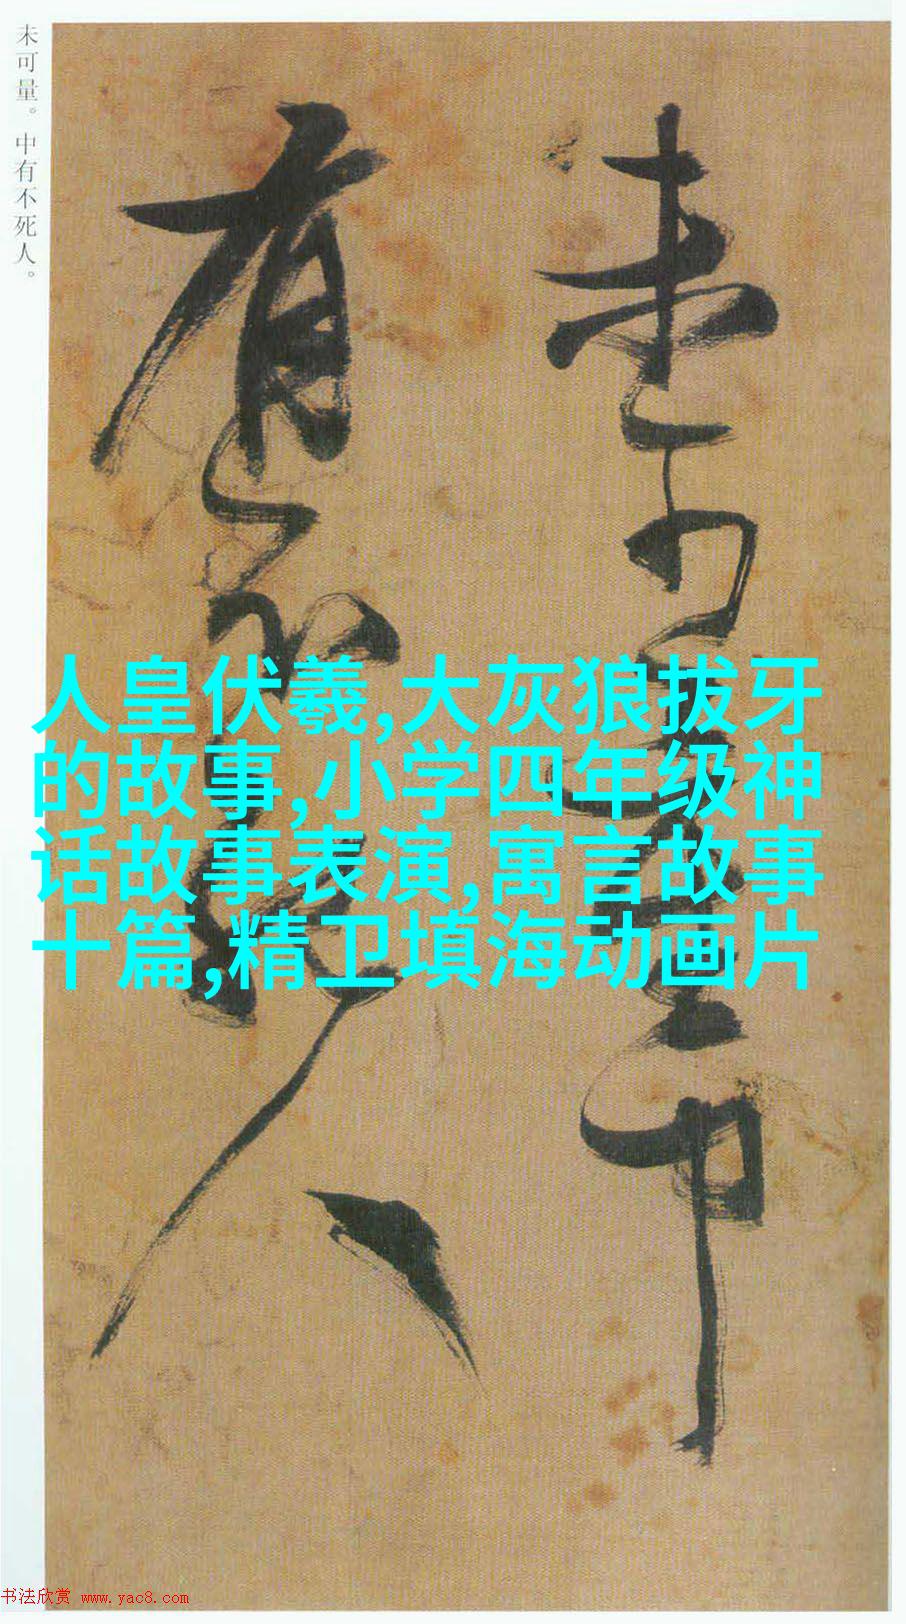 未可量。中有不死人。
未可量中
有不死人
人皇伏羲,大灰狼拔牙
的故事,小学四年级神
话故事表演,寓言故事
十篇,精卫填海动画片
书法欣赏 www.yac8.com